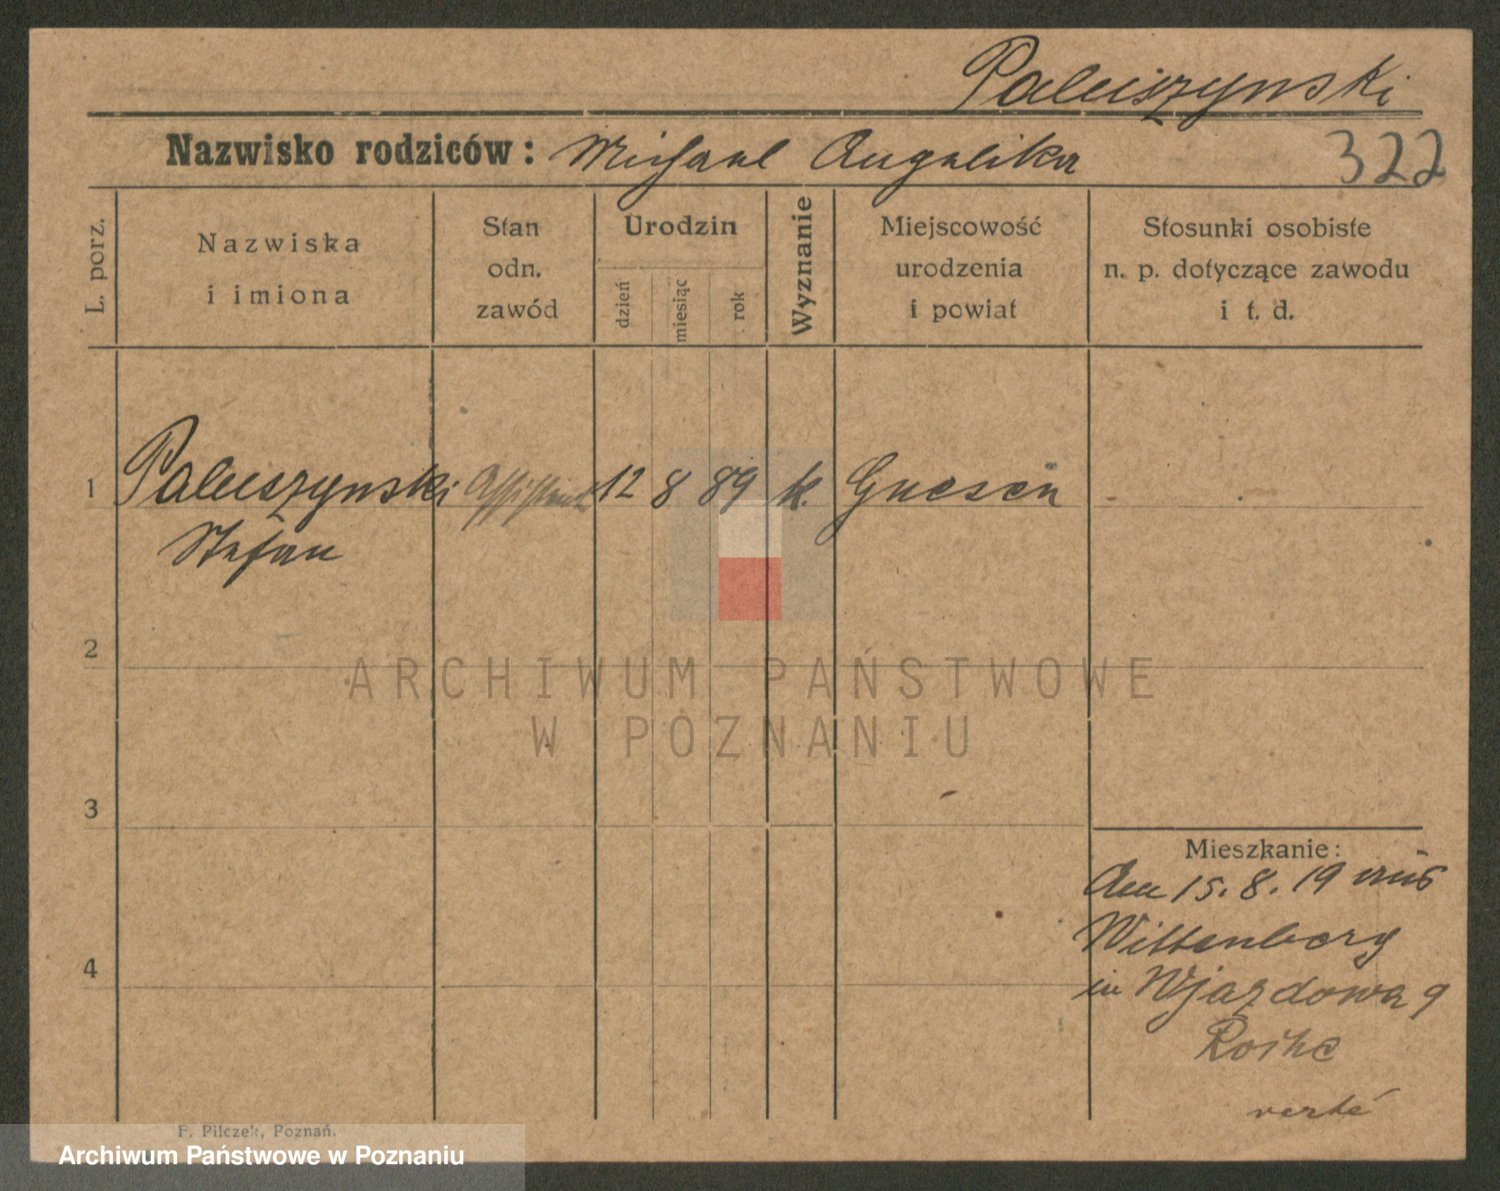 Paluszynski
Nazwisko rodziców: Michael Angelika
322
L. porz.
Nazwiska
i imiona
Stan
odn.
zawód
Urodzin
dzień
miesiąc
rok
Wyznanie
Miejscowość
urodzenia
i powiat
Stosunki osobiste
n. p. dotyczące zawodu
i t. d.
1
Paluszynski Assistent 12 8 89 k. Gnesen
Stefan
2
ARCHIWUM PAŃSTWOWE
W POZNANIU
3
Mieszkanie:
Am 15. 8. 19 aus
Wittenberg
4
in Wjazdowa 9
verte
F. Pilczek, Poznań.
Archiwum Państwowe w Poznaniu